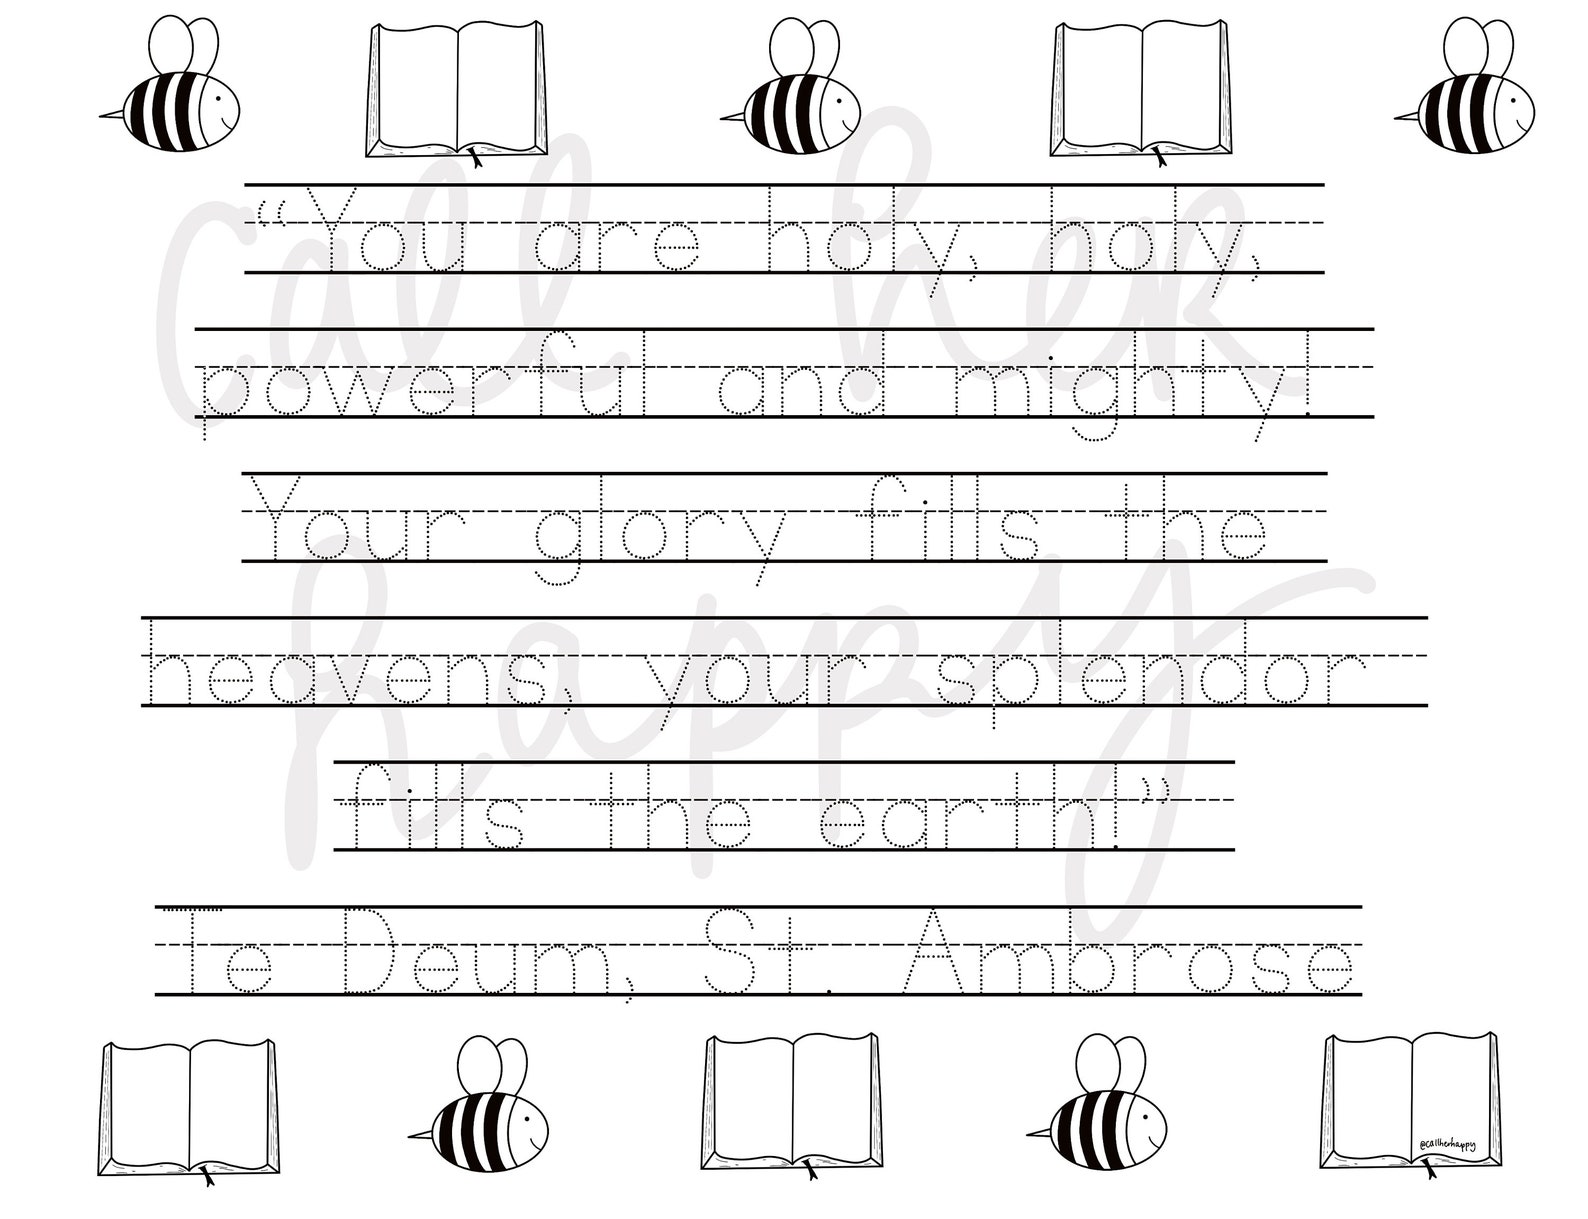 “You are holy, holy,
powerful and mighty!
Your glory fills the
heavens, your splendor
fills the earth!”
Te Deum, St. Ambrose
Call her
happy
@callherhappy